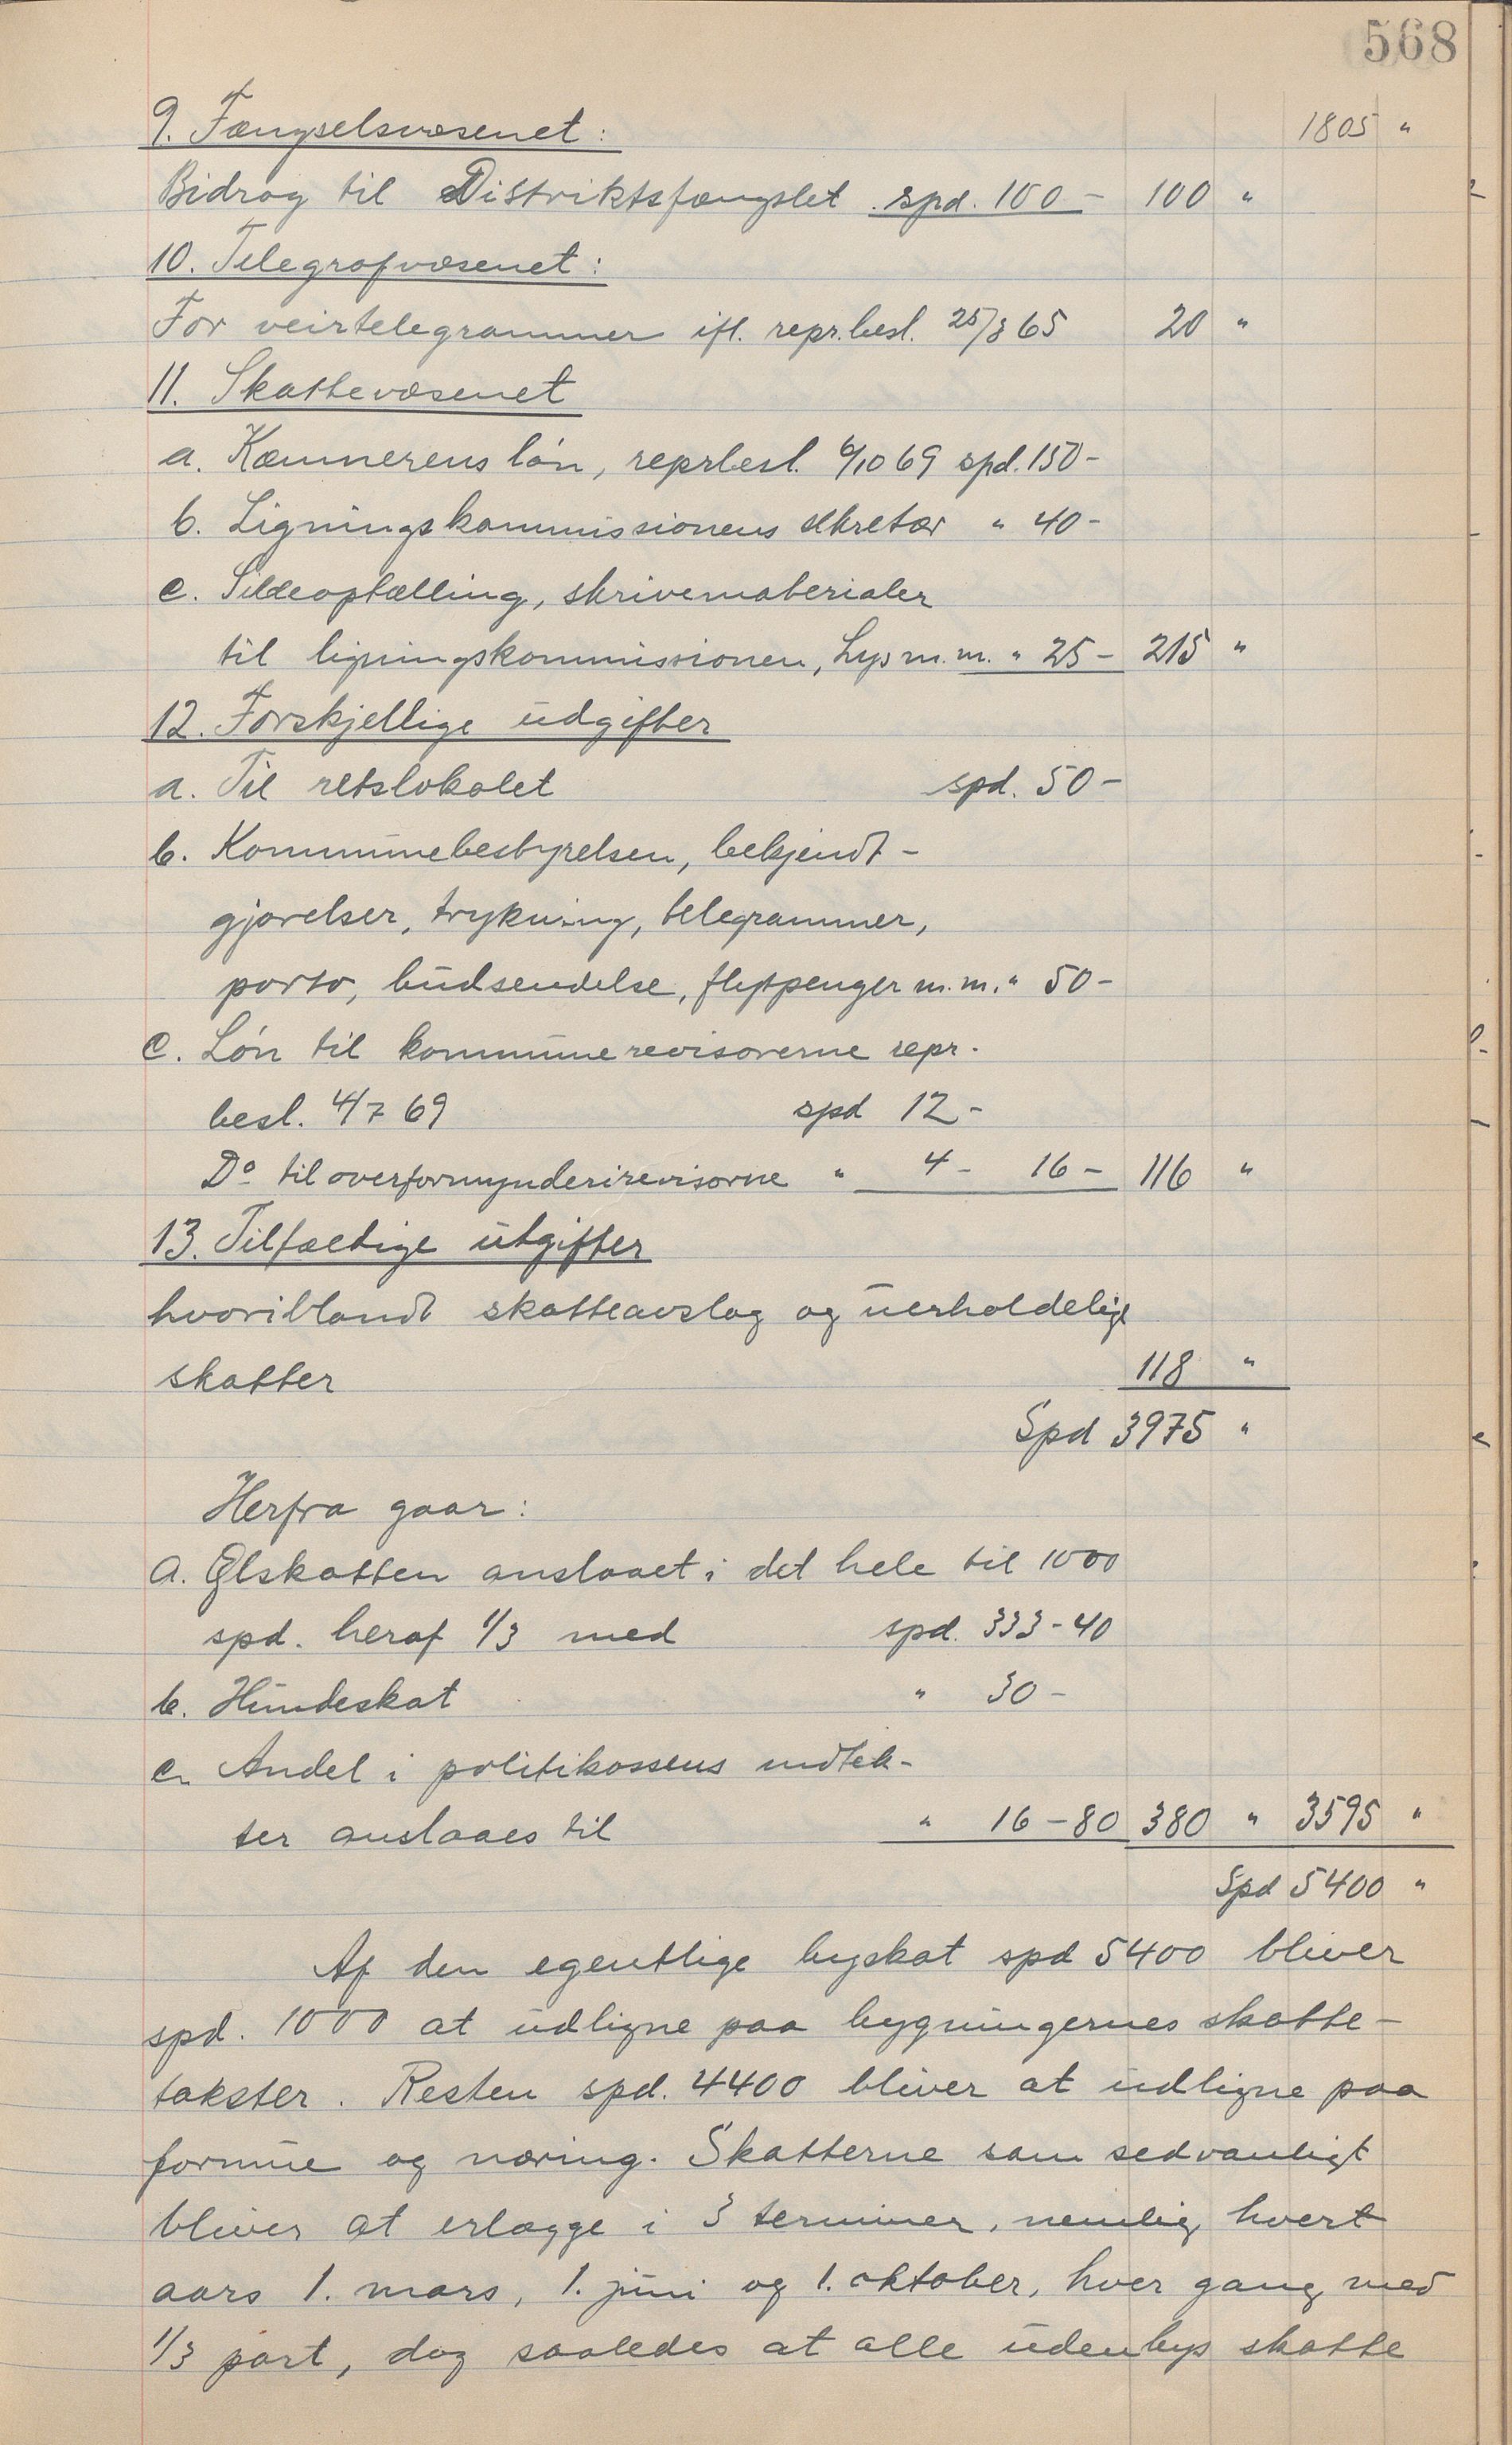 568
9. Fængselsvæsenet: 1805 "
Bidrag til Distriktsfængslet spd. 100 - 100 "
10. Telegrafvæsenet:
For veirtelegrammer ifl. repr.besl. 25/8 65 20 "
11. Skattevæsenet
a. Kæmnerens løn, reprbesl. 6/10 69 spd. 150 -
b. Ligningskommissionens sekretær " 40 -
c. Sildeoptælling, skrivematerialer
til ligningskommissionen, Lys m.m. " 25 - 215 "
12. Forskjellige udgifter
a. Til retslokalet spd. 50 -
b. Kommunebestyrelsen, bekjendt-
gjørelser, trykning, telegrammer,
porto, budsendelse, flytpenger m.m. " 50 -
c. Løn til kommunerevisorerne repr.
besl. 4/7 69 spd 12 -
Do til overformynderirevisorne " 4 - 16 - 116 "
13. Tilfældige utgifter
hvoriblandt skatteavslag og uerholdelige
skatter 118 "
Spd 3975 "
Herfra gaar:
a. Ølskatten anslaaet i det hele til 1000
spd. heraf 1/3 med spd. 333 - 40
b. Hundeskat " 30 -
c. Andel i politikassens indtek-
ter anslaaes til " 16 - 80 380 " 3595 "
Spd 5400 "
Af den egentlige byskat spd 5400 bliver
spd. 1000 at udligne paa bygningernes skatte-
takster. Resten spd. 4400 bliver at udligne paa
formue og næring. Skatterne som sedvanligt
bliver at erlægge i 3 terminer, nemlig hvert
aars 1. mars, 1. juni og 1. oktober, hver gang med
1/3 part, dog saaledes at alle udenbys skatte